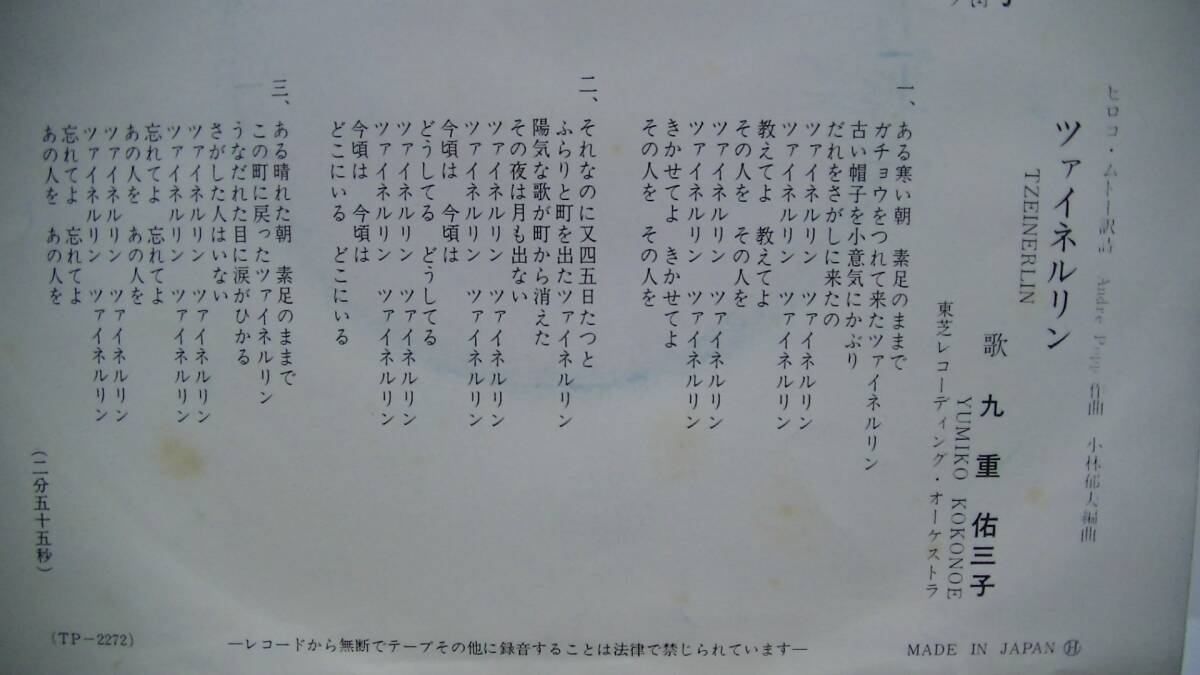 ヒロコ・ムトー訳詩　Andre Popp 作曲　小林郁夫編曲
ツァイネルリン
TZEINERLIN
歌　九重佑三子
YUMIKO KOKONOE
東芝レコーディング・オーケストラ
一、ある寒い朝　素足のままで
ガチョウをつれて来たツァイネルリン
古い帽子を小意気にかぶり
だれをさがしに来たの
ツァイネルリン　ツァイネルリン
ツァイネルリン　ツァイネルリン
教えてよ　教えてよ
その人を　その人を
ツァイネルリン　ツァイネルリン
ツァイネルリン　ツァイネルリン
きかせてよ　きかせてよ
その人を　その人を
二、それなのに又四五日たつと
ふらりと町を出たツァイネルリン
陽気な歌が町から消えた
その夜は月も出ない
ツァイネルリン　ツァイネルリン
ツァイネルリン　ツァイネルリン
今頃は　今頃は
どうしてる　どうしてる
ツァイネルリン　ツァイネルリン
ツァイネルリン　ツァイネルリン
今頃は　今頃は
どこにいる　どこにいる
三、ある晴れた朝　素足のままで
この町に戻ったツァイネルリン
うなだれた目に涙がひかる
さがした人はいない
ツァイネルリン　ツァイネルリン
ツァイネルリン　ツァイネルリン
忘れてよ　忘れてよ
あの人を　あの人を
ツァイネルリン　ツァイネルリン
ツァイネルリン　ツァイネルリン
忘れてよ　忘れてよ
あの人を　あの人を
（二分五十五秒）
(TP-2272)
—レコードから無断でテープその他に録音することは法律で禁じられています—
MADE IN JAPAN Ⓗ